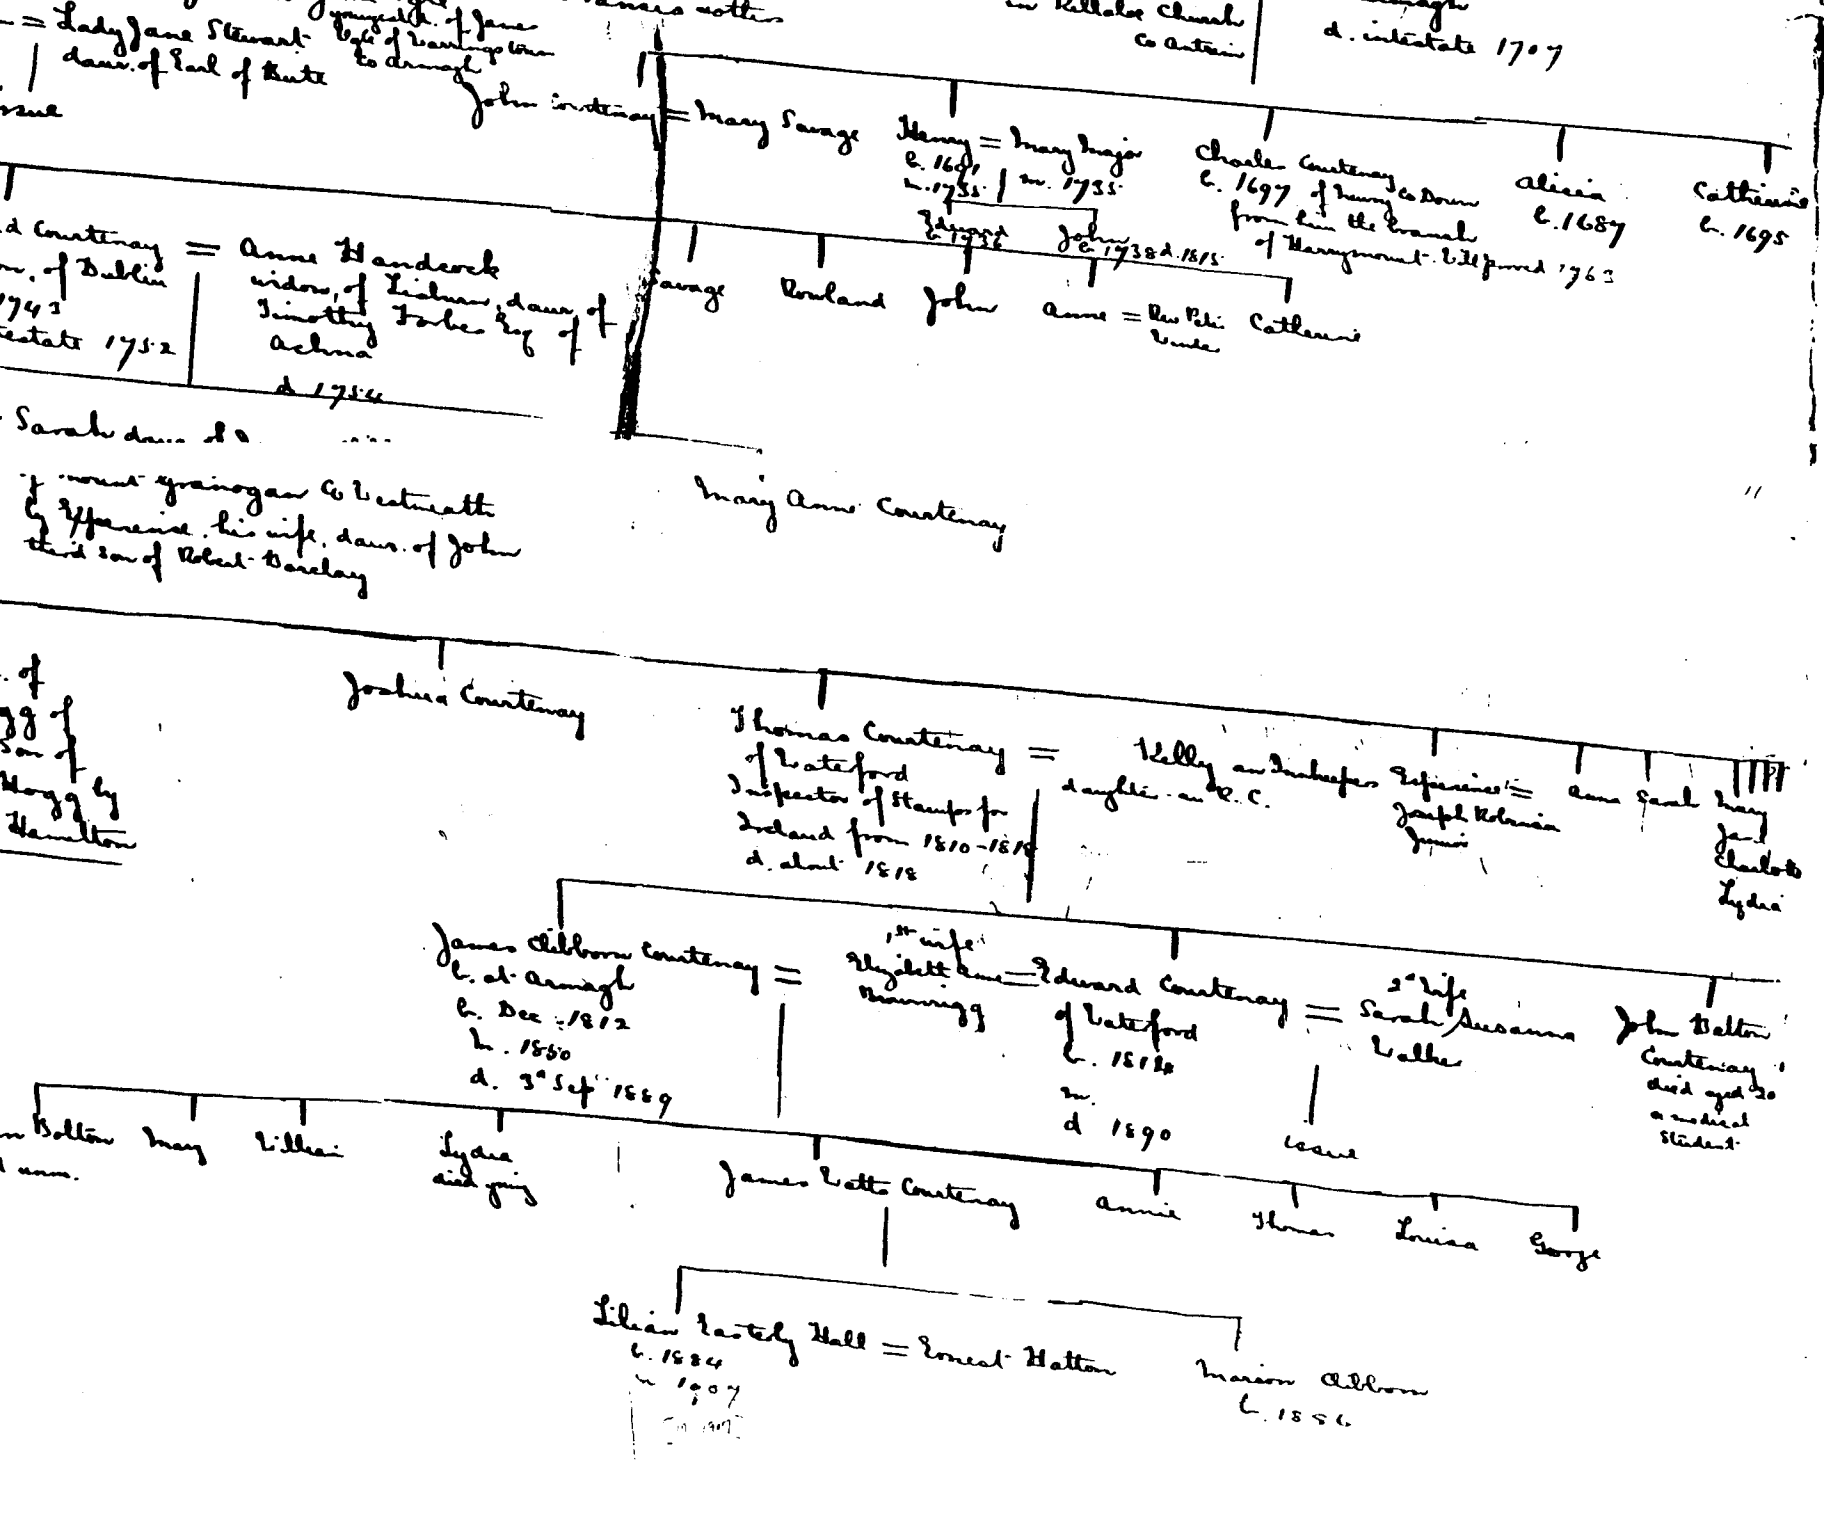 = Lady Jane Stewart
daur. of Earl of Bute
of Jane
of Warringstown
Co Armagh
in Killaloe Church
Co Antrim
d. intestate 1707
issue
John Courtenay = Mary Savage
Henry = Mary Major
b. 1691
m. 1735 m. 1735
Edward
b 1736
John
b 1738 d. 1815
Charles Courtenay
b. 1697 of Newry Co Down
from him the branch
of Harrymount. Will proved 1763
Alicia
b. 1687
Catherine
b. 1695
d Courtenay = Anne Handcock
of Dublin
1743
estate 1752
widow, of Lisburn, daur. of
Timothy Forbes Esq of
Aclma
d 1754
Savage Rowland John Anne = Rev Peter Catherine
Sarah daur of
mount Grainogan Co Westmeath
by Experience, his wife, daur. of John
third son of Robert Barclay
Mary Anne Courtenay
. of
gg of
Son of
Hogg by
Hamilton
Joshua Courtenay
Thomas Courtenay =
of Waterford
Inspector of Stamps for
Ireland from 1810-1818
d. about 1818
Kelly an Innkeepers
daughter. an R.C.
Experience =
Joseph Robinson
Junior
Anna Sarah Mary
Jane
Charlotte
Lydia
James Clibborn Courtenay =
b. at Armagh
b. Dec. 1812
m. 1850
d. 3d Sep 1889
1st wife
Elizabeth Anne = Edward Courtenay =
Brownrigg
of Waterford
b. 1814
m.
d 1890
2d Wife
Sarah Susanna
Walker
issue
John Bolton
Courtenay
died aged 20
a medical
student
n Bolton Mary William
d unm.
Lydia
died young
James Watts Courtenay Annie Thomas Louisa George
Lilian Easterly Hall = Ernest Hatton
b. 1884
m 1907
Marion Clibborn
b. 1886